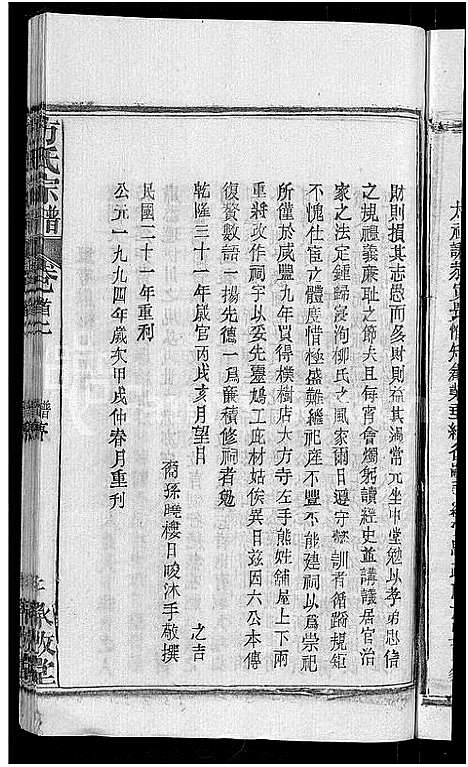 財則損其志愚而多財則益其過常元坐中堂勉以孝弟忠信
之規禮義廉耻之節夫且每宵會燭躬讀經史並講議居官治
家之法定鍾歸寢洵柳氏之風家爾日遵守彜訓者循蹈規矩
不愧仕宦之體度惜極盛難繼祀產不豐不能建祠以爲崇祀
所僅於咸豐九年買得樸樹店大方寺左手熊姓鋪屋上下兩
重將改作祠宇以妥先靈鳩工庀材姑俟異日茲因六公本傳
復贅數語一揚先德一爲蘄積修祠者勉
乾隆三十一年歲官丙戌亥月望日 之吉
裔孫曉樓日畯沐手敬撰
民國二十一年重刋
公元一九九四年歲次甲戌仲春月重刋
方氏宗譜
卷首二
譜序
敬堂